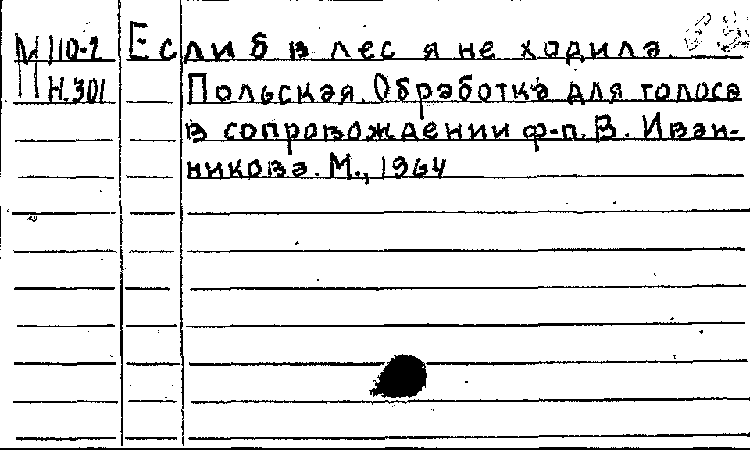 М 110-2 Если б в лес я не ходила.
П Н.301 Польская. Обработка для голоса
в сопровождении ф-п. В. Иван-
никова. М., 1964